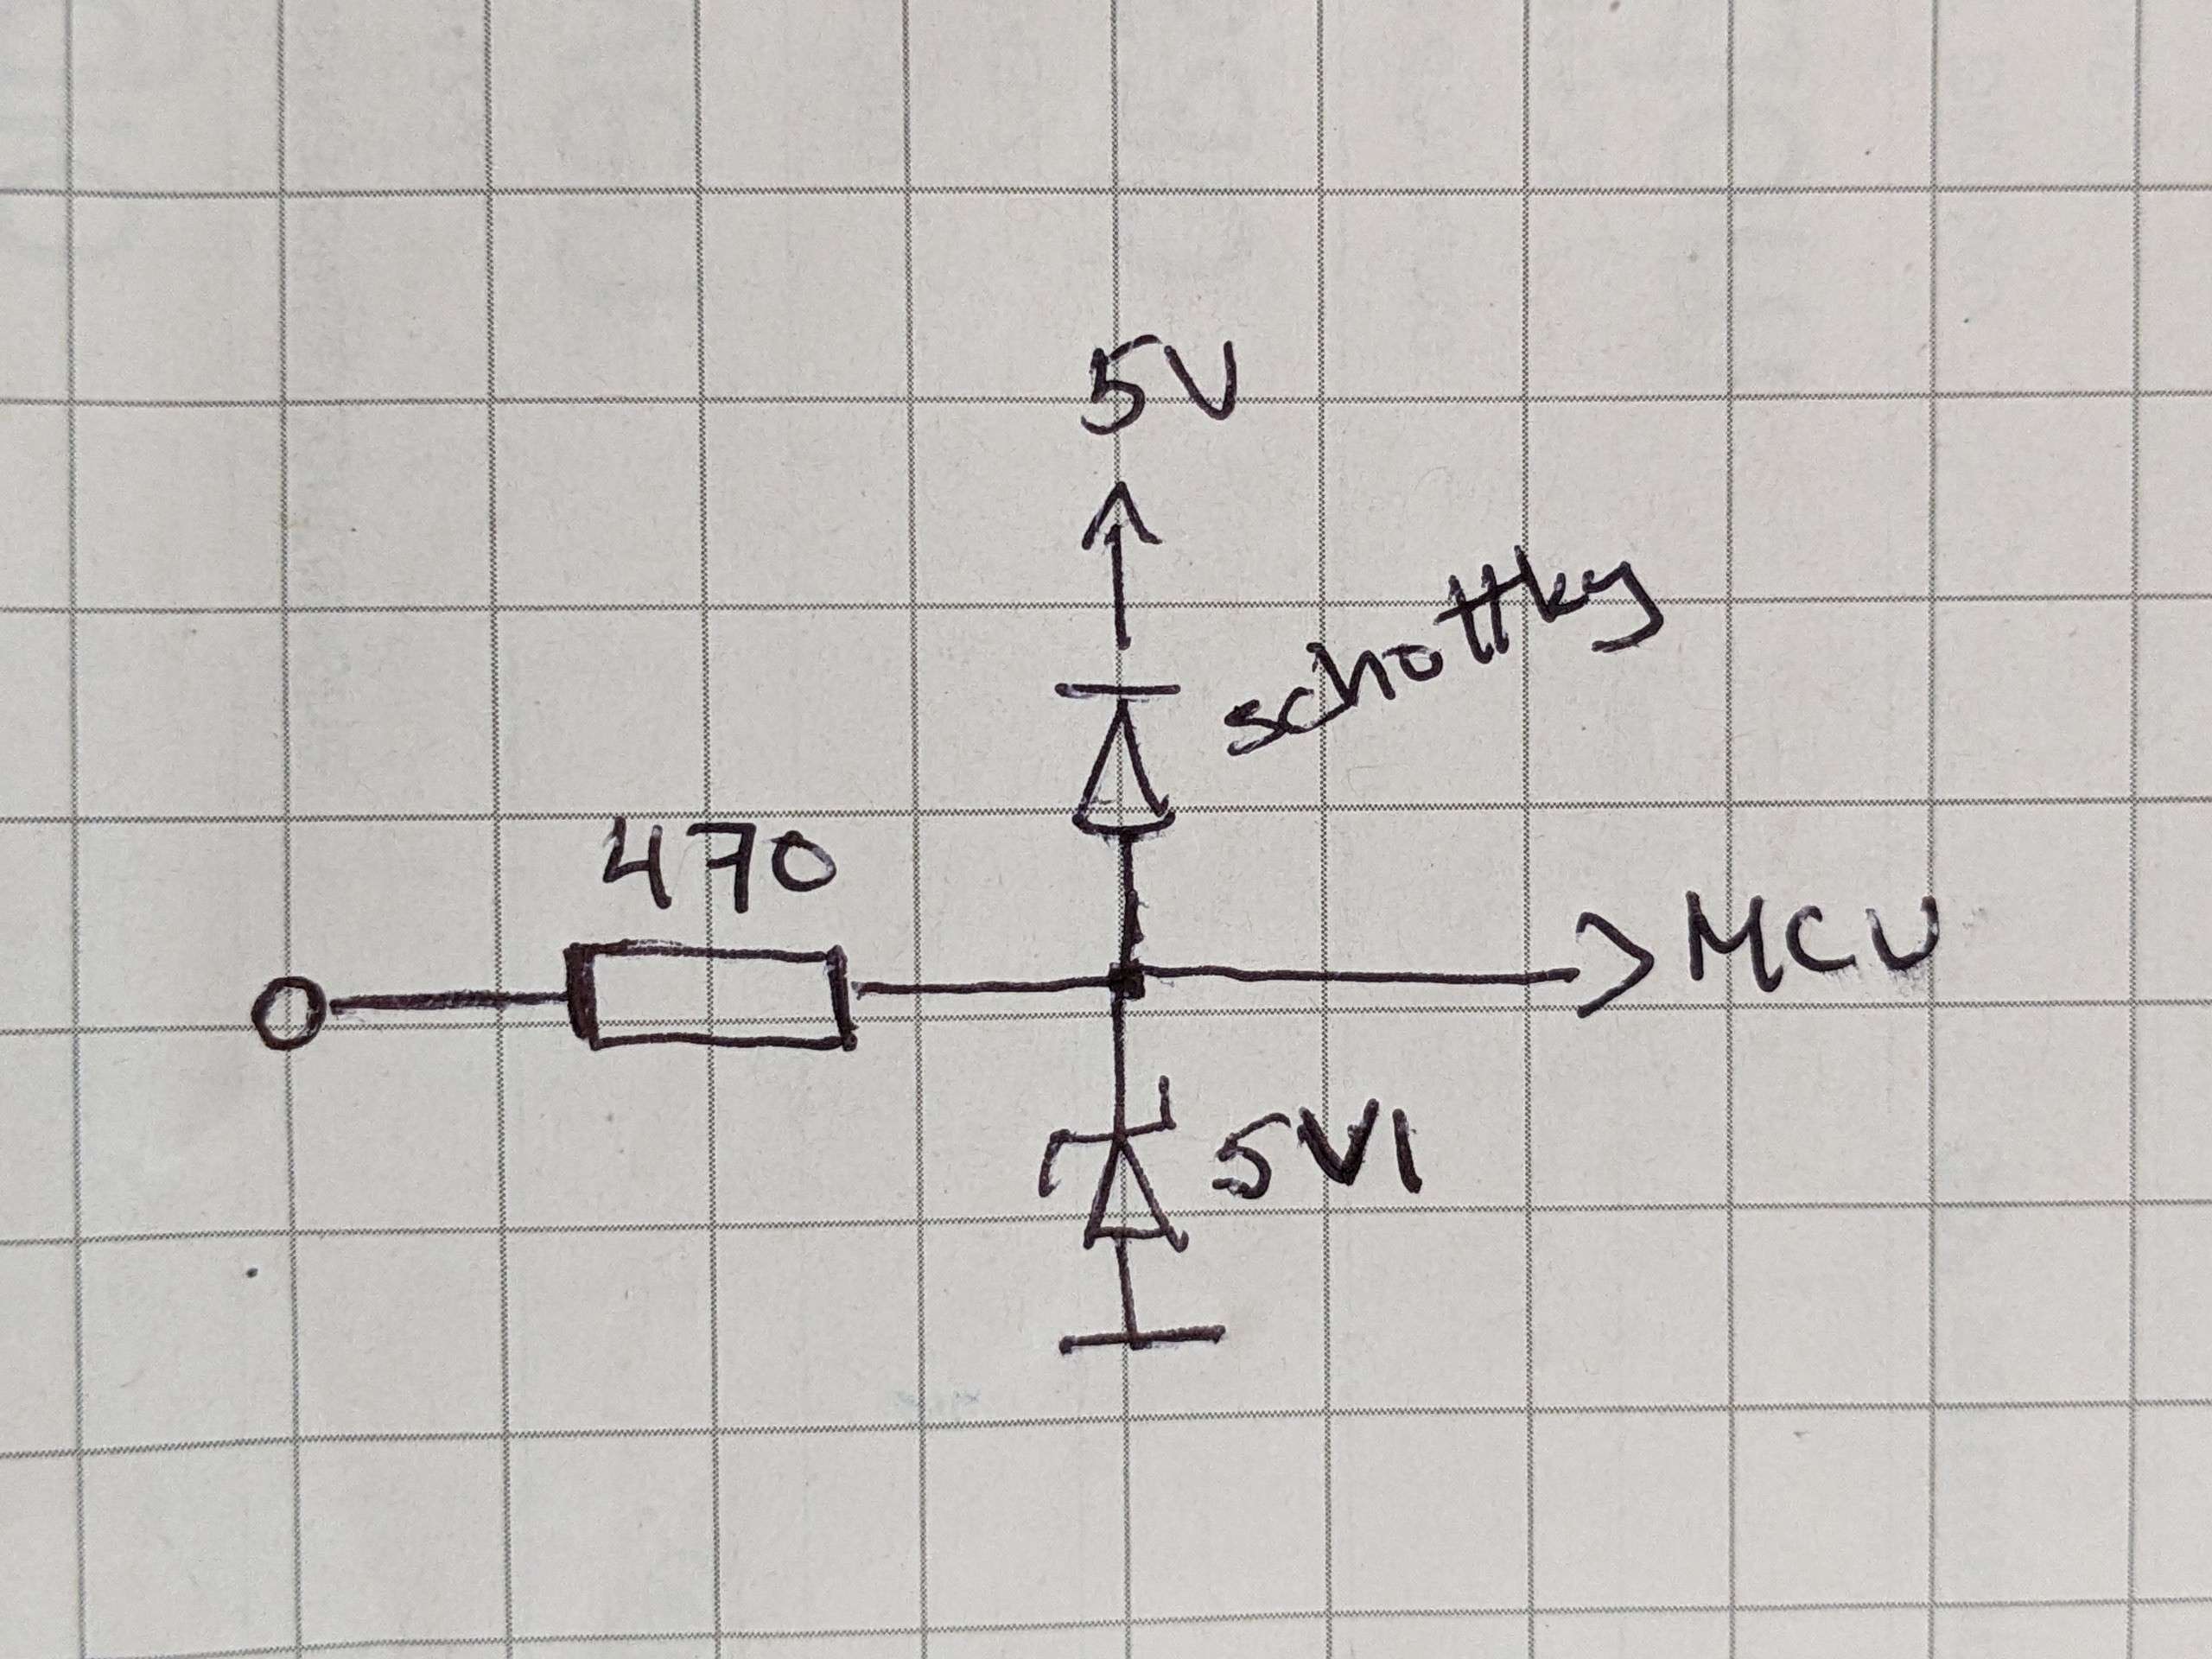 5V
schottky
470
MCU
5V1